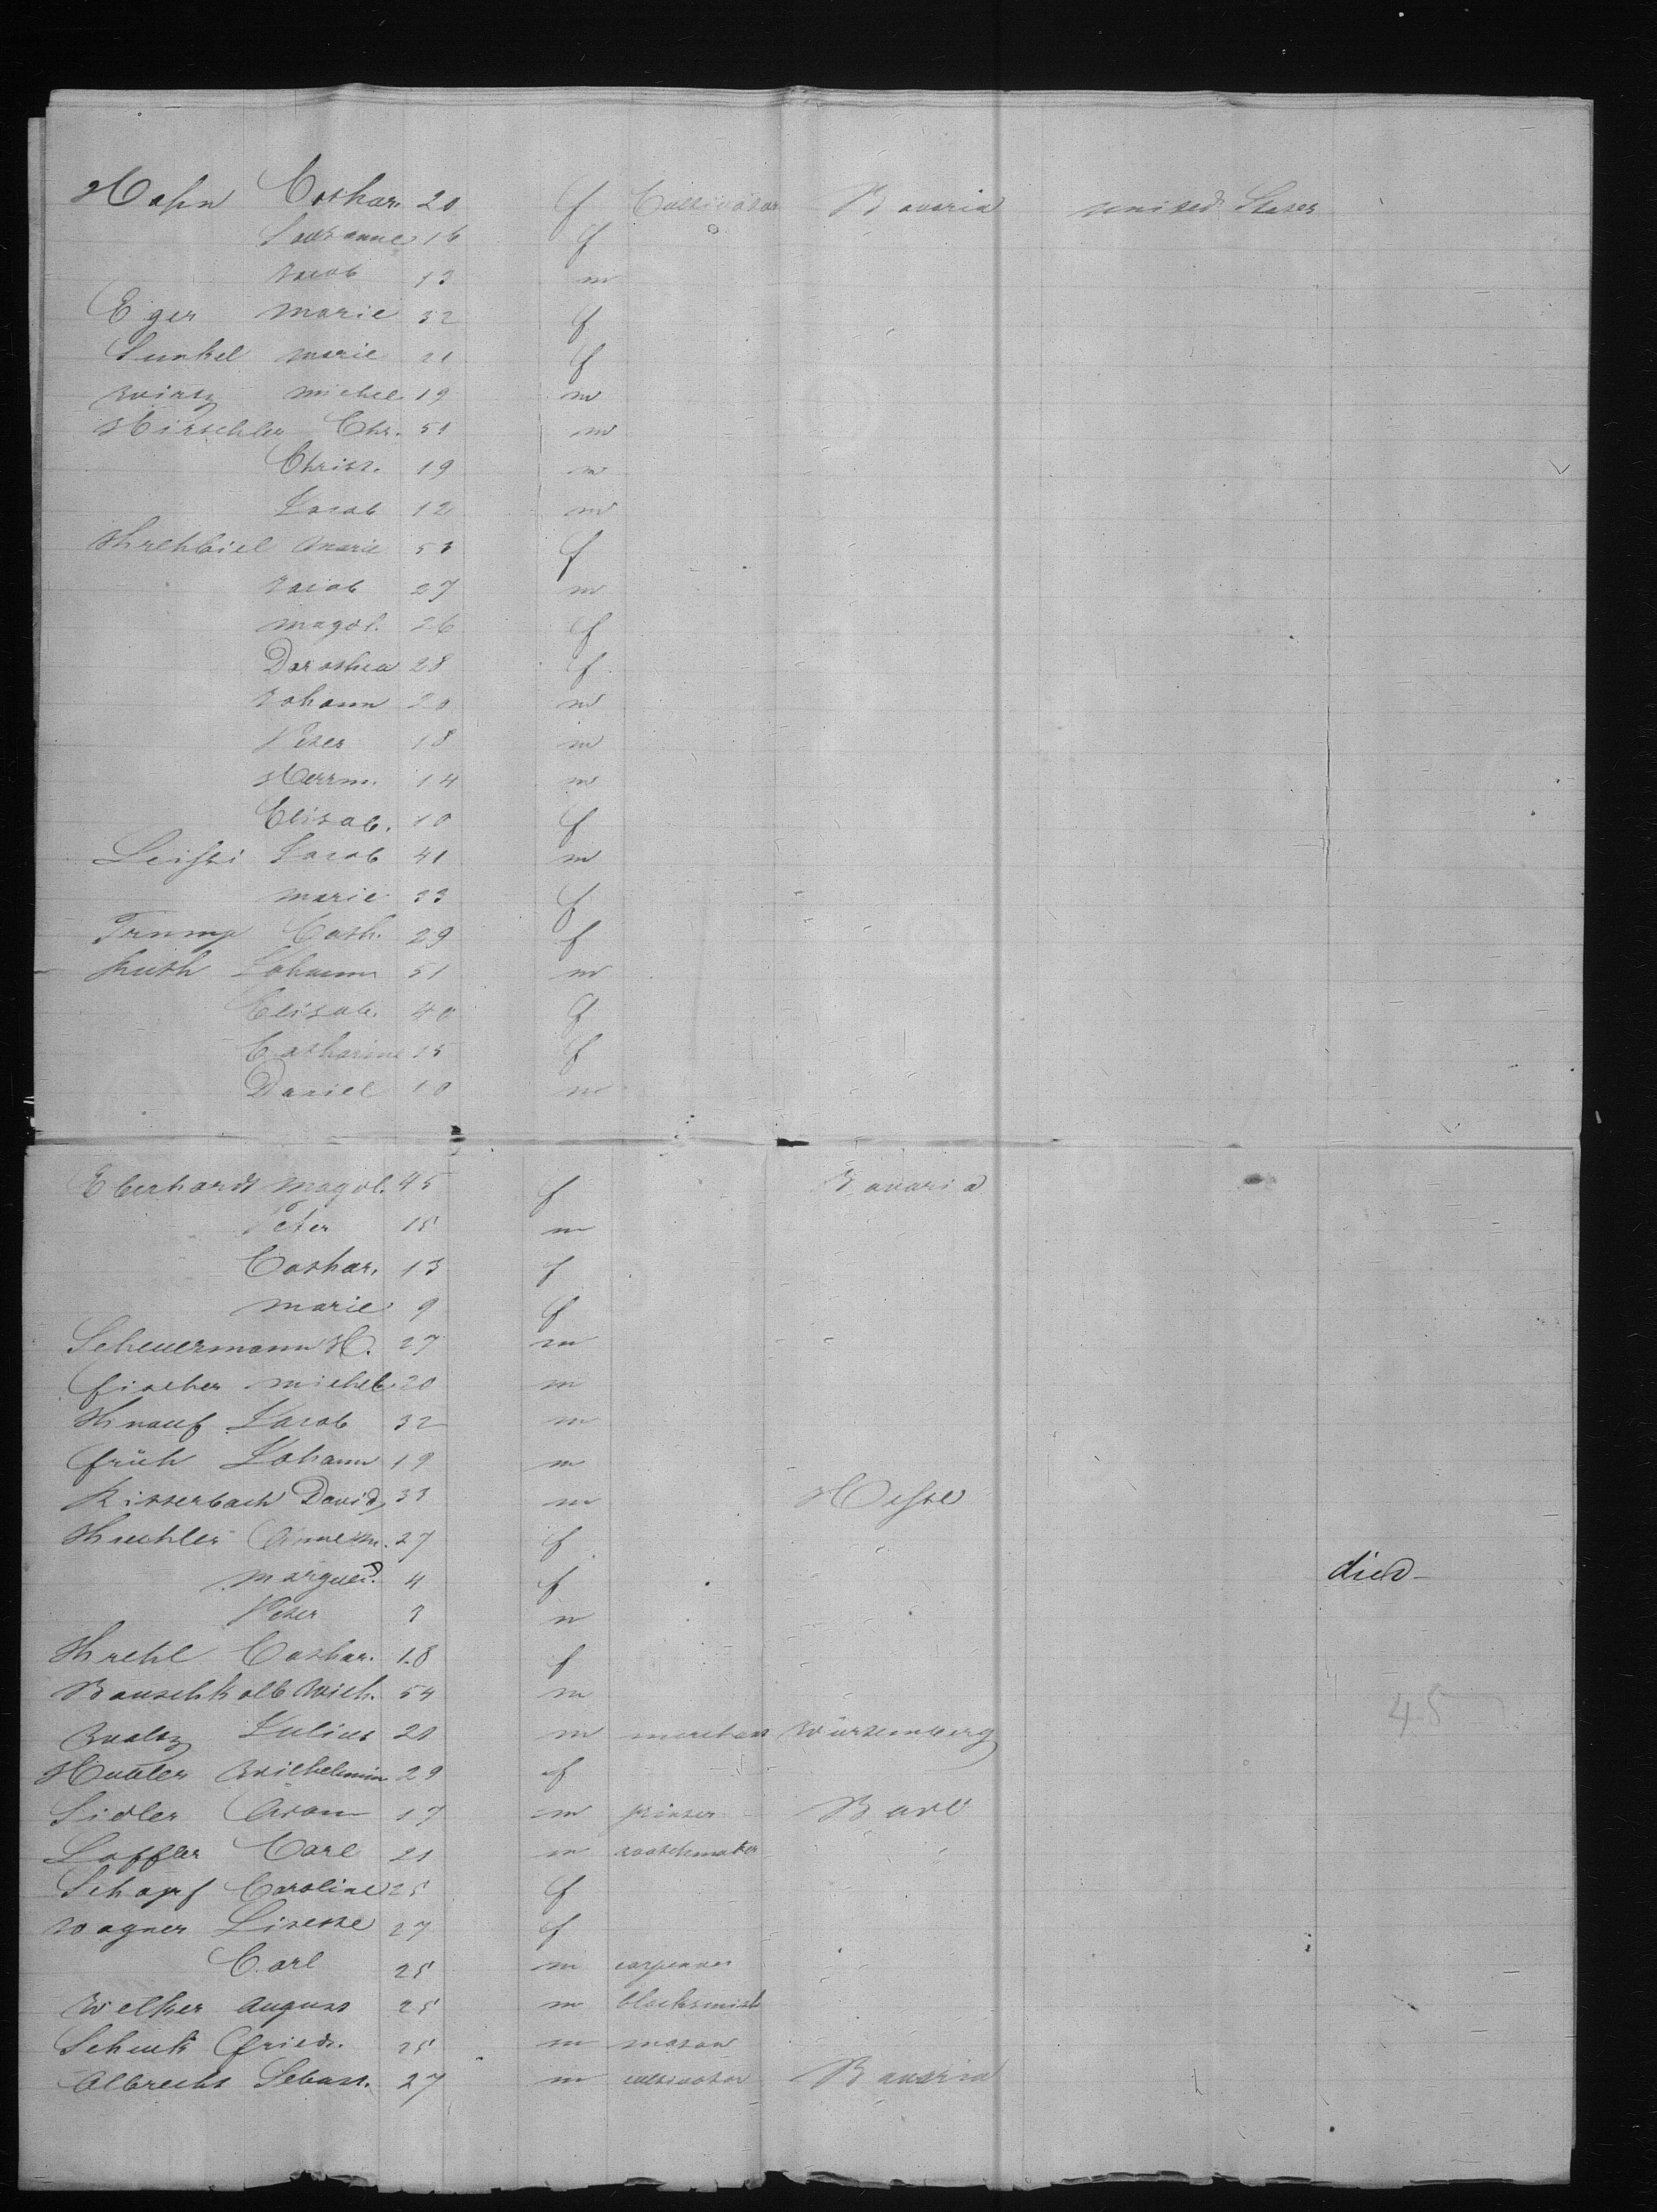 Hahn Cathar. 20 f Cultivator Bavaria united States
Sousanne 16 f
Jacob 13 m
Eger Marie 32 f
Sunkel Marie 21 f
Wirtz Michel 19 m
Hirschler Chr. 51 m
Christ. 19 m
Jacob 12 m
Krehbiel Marie 53 f
Jacob 27 m
Magd. 26 f
Dorothea 28 f
Johann 20 m
Peter 18 m
Herrm. 14 m
Elisab. 10 f
Jacob 41 m
Marie 33 f
Trump Cath. 29 f
Ruth Johann 51 m
Elisab. 40 f
Catharine 15 f
Daniel 10 m
Eberhardt Magd. 45 f Bavaria
Peter 15 m
Cathar. 13 f
Marie 9 f
Scheuermann H. 27 m
Fischer Michel 20 m
Knauf Jacob 32 m
Früh Johann 19 m
Risserbach David 33 m Hesse
Kuchler Anne M. 27 f
Marguer. 4 f died
Peter 3 m
Krehl Cathar. 18 f
Bauschkolb Mich. 54 m 45
Waltz Julius 20 m merchant Würtemberg
Wilhelmin 29 f
Sidler Adam 17 m printer Bade
Loffler Carl 21 m watchmaker
Schopf Caroline 25 f
Wagner Lisette 27 f
Carl 25 m carpenter
Welker August 25 m blacksmith
Schenk Friedr. 25 m mason
Albrecht Sebast. 27 m cultivator Bavaria